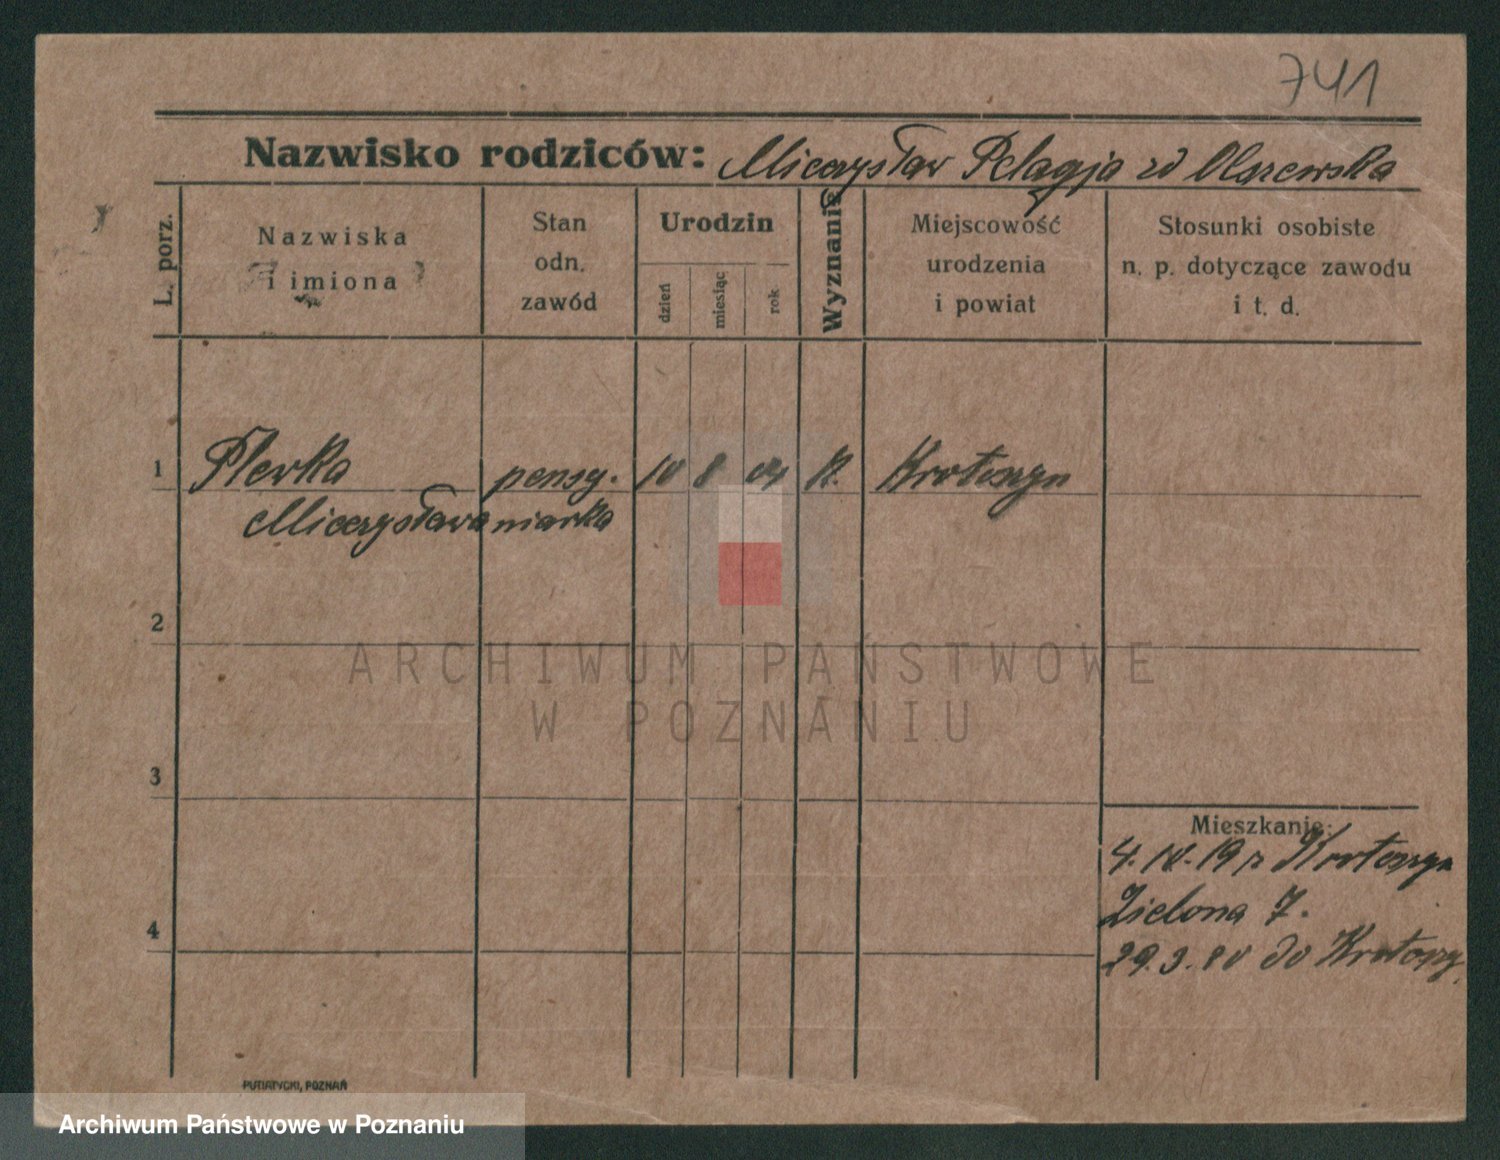 741
Nazwisko rodziców: Mieczysław Pelagja zd Olszewska
L. porz.
Nazwiska
i imiona
Stan
odn.
zawód
Urodzin
dzień
miesiąc
rok
Wyznanie
Miejscowość
urodzenia
i powiat
Stosunki osobiste
n. p. dotyczące zawodu
i t. d.
1 Plewka pensy. 10 8 04 K. Krotoszyn
Mieczysława niarka
2
3
4
Mieszkanie:
4. IV. 19 z Krotoszyn
Zielona 7.
29. 3. do Krotoszy.
PUTIATYCKI, POZNAŃ
ARCHIWUM PAŃSTWOWE
W POZNANIU
Archiwum Państwowe w Poznaniu